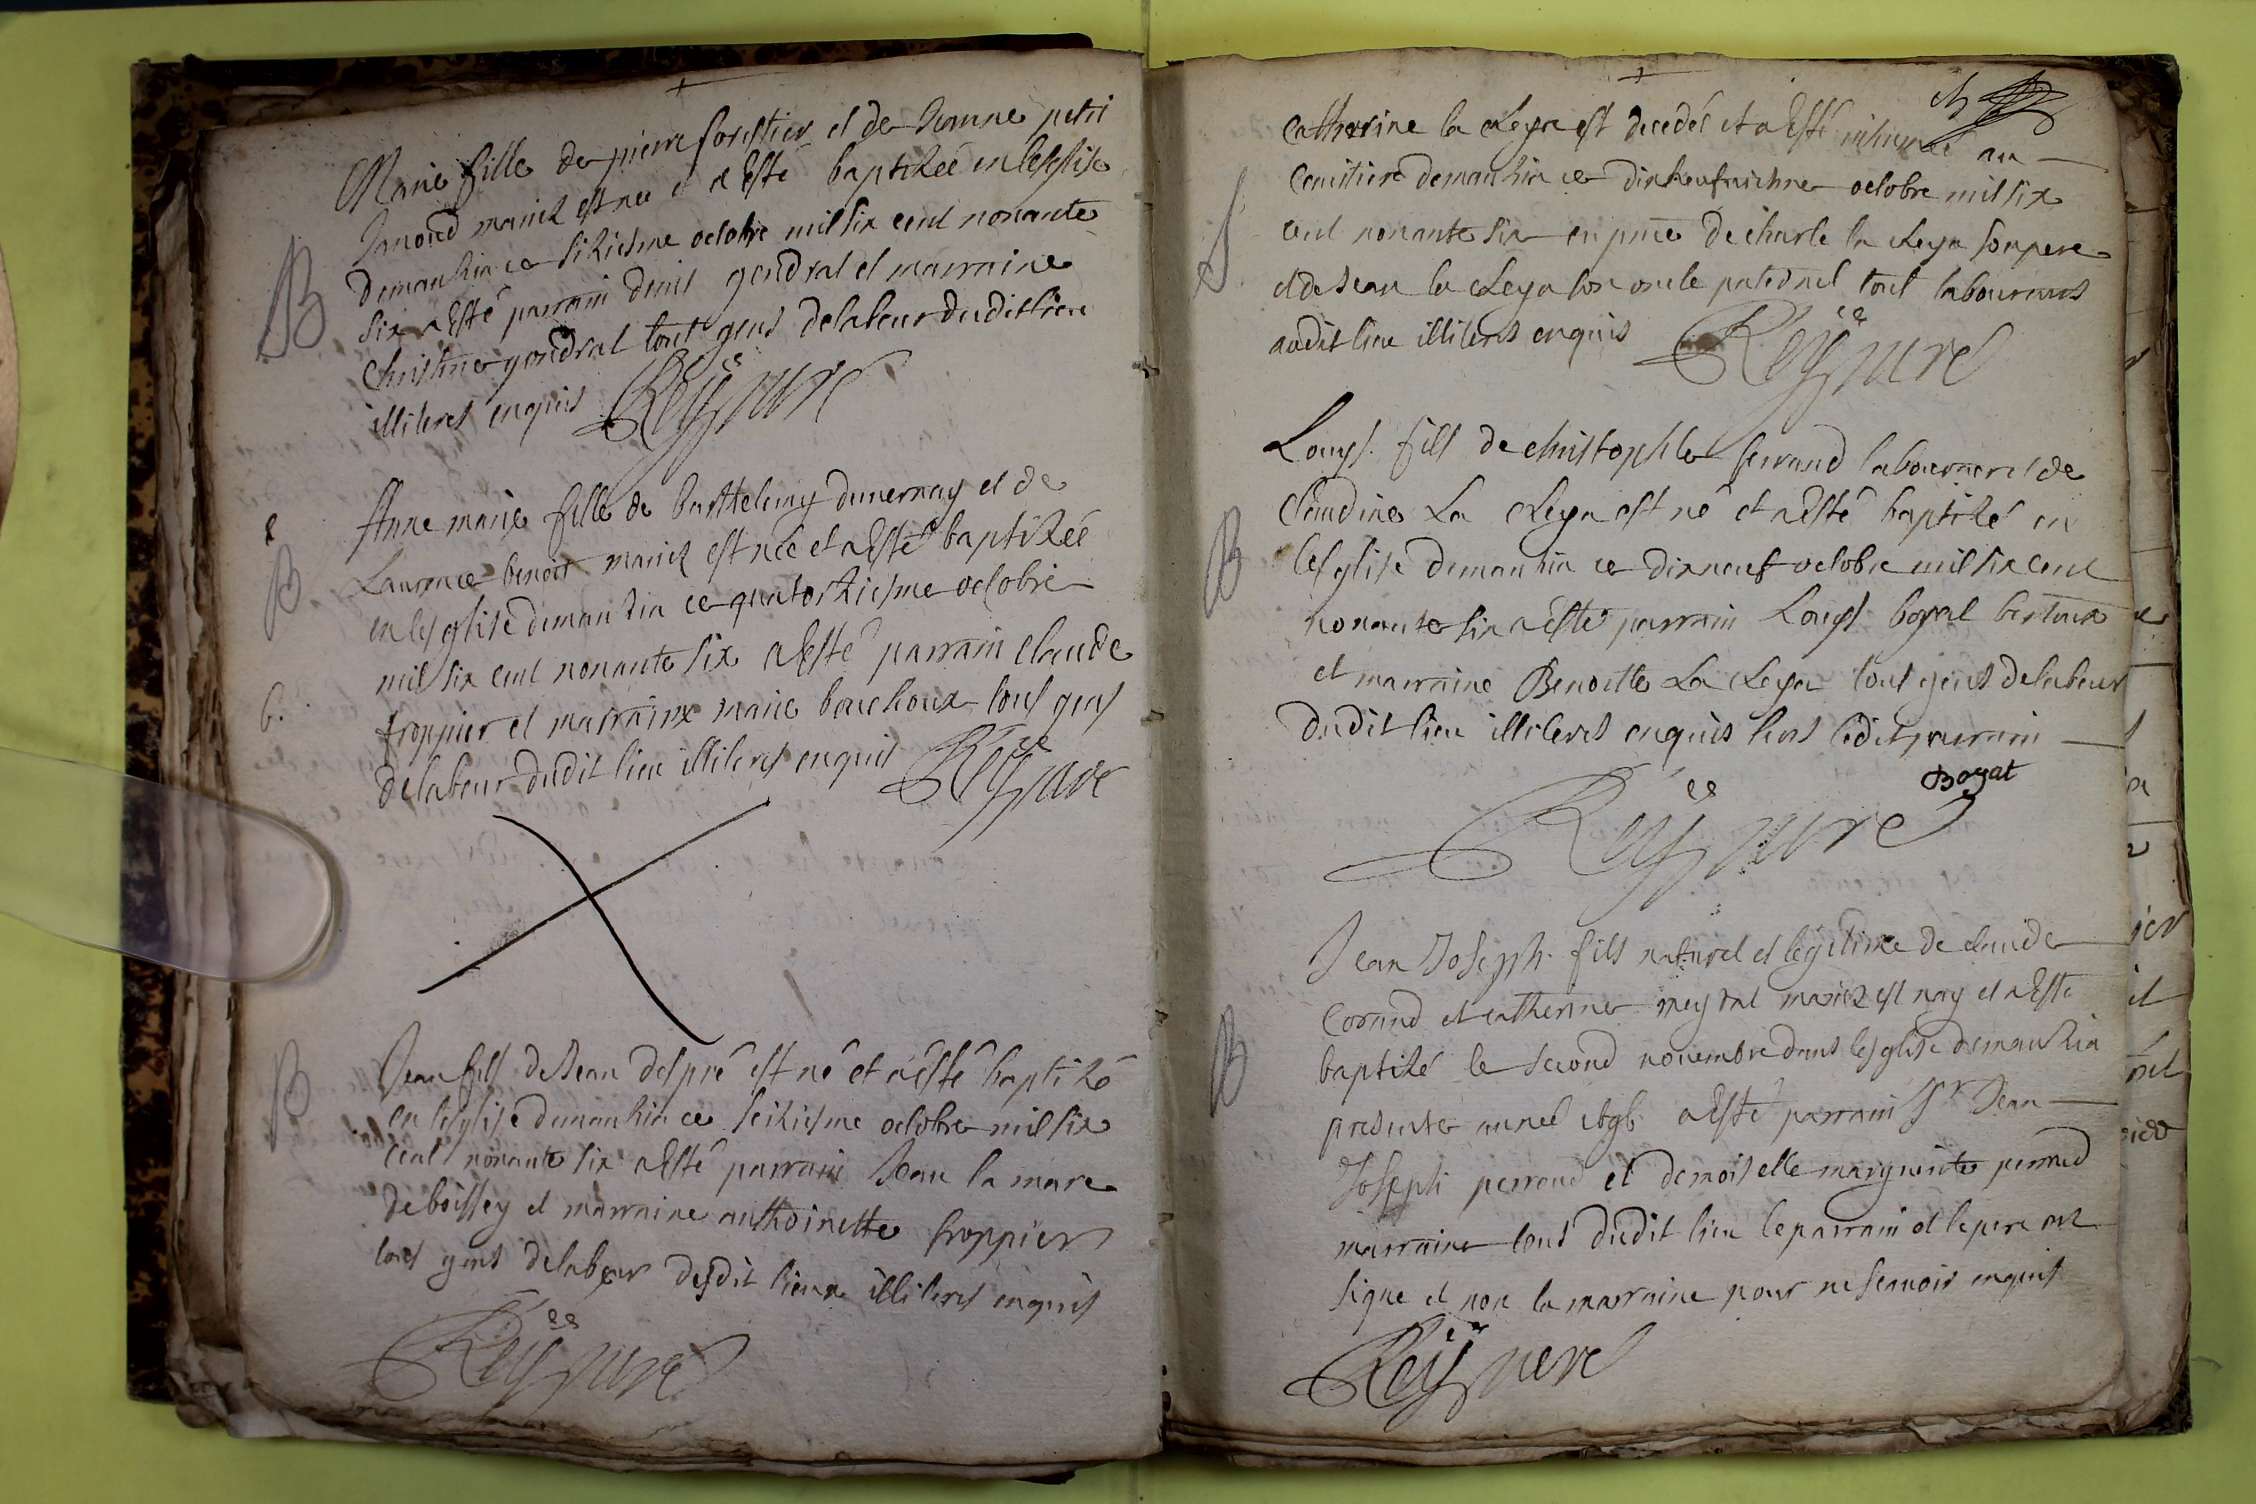 Marie fille de pierre forestier et de Jeanne petit
Janoud mariez est née et a esté baptizée en lesglise
demanzia ce siziesme octobre mil six cent nonante
six a esté parrain denis gondrat et marraine
Christine gondrat tout gens delabeur dudit lieu
illiteres enquis Reÿ curé
B
Anne marie fille de barthelemy dunernay et de
Laurence benoit mariez est née et a esté baptizée
en lesglise demanzia ce quatorziesme octobre
mil six cent nonante six a esté parrain claude
froppier et marraine marie bouchoux tous gens
delabeur dudit lieu illiteres enquis Reÿ curé
B
6.
Jean fils de Jean despré est né et a esté baptizé
en lesglise demanzia ce seiziesme octobre mil six
cent nonante six a esté parrain Jean la mare
deboissey et marraine anthoinette froppier
tous gens delabeur desdit lieux illiteres enquis
Reÿ curé
B
Catherine la Leya est decedée et a esté inhumée au
Cemitiere demanzia ce dixneufviesme octobre mil six
cent nonante six en pnce de charle la Leya son pere
et de Jean la Leya son oncle paternel tout laboureurs
audit lieu illiteres enquis Reÿ curé
S
Louys fils de christophle ferrand laboureur et de
Claudine La Leya est né et a esté baptizé en
lesglise demanzia ce dixneuf octobre mil six cent
nonante six a esté parrain Louys boyat
et marraine Benoitte La Leya tout gens delabeur
dudit lieu illiteres enquis hors ledit parrain
B
Boyat
Reÿ curé
Jean Joseph fils naturel et legitime de claude
Corand et catherine meytal mariez est nay et a esté
baptizé le second novembre dans lesglise demanzia
presente année a esté parrain Sr Jean
Joseph perroud et demoiselle marguerite perroud
marraine tous dudit lieu le parrain et le pere ont
signe et non la marraine pour ne scauoir enquis
B
Reÿ curé